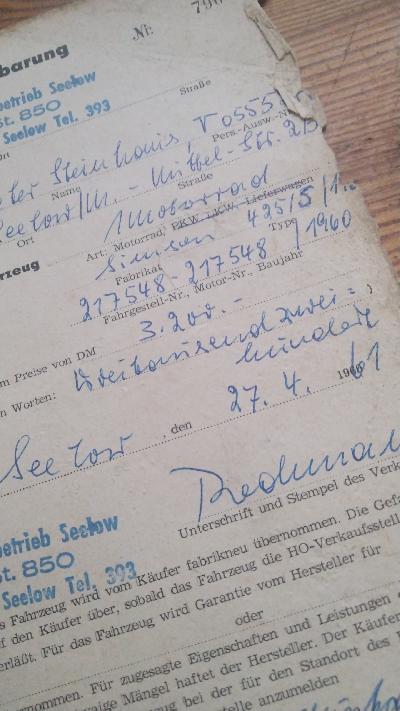 Nr. 790
barung
betrieb Seelow
st. 850
Seelow Tel. 393
Ort Straße
Steinhöuis, V 05551
Name Pers.-Ausw.-Nr.
Seelow/M. - Mittel-Str. 2
Ort Straße
1 Motorrad
Art: Motorrad, PKW, LKW, Lieferwagen
rzeug Simson 425/S/1
Fabrikat Type
217548 - 217548 / 1960
Fahrgestell-Nr., Motor-Nr., Baujahr
m Preise von DM 3.200.-
n Worten: dreitausendzwei=
hundert
Seelow, den 27. 4. 1961
Unterschrift und Stempel des Verk
betrieb Seelow
st. 850
Seelow Tel. 393
s Fahrzeug wird vom Käufer fabrikneu übernommen. Die Gefa
f den Käufer über, sobald das Fahrzeug die HO-Verkaufsstell
erläßt. Für das Fahrzeug wird Garantie vom Hersteller für
oder
nommen. Für zugesagte Eigenschaften und Leistungen
aige Mängel haftet der Hersteller. Der Käufer
zeug bei der für den Standort des
telle anzumelden